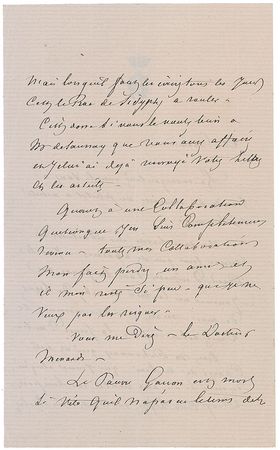 mais lorsqu'il faut les écrire tous les jours
c'est le Roc de Sisyphe à rouler -
C'est donc si vous le voulez bien à
Mr delaunay que vous aurez affaire
et je lui ai déjà envoyé votre lettre
et les articles -
Quant à une Collaboration
quelconque j'en suis complètement
revenu - toutes mes Collaborations
m'ont fait perdre un ami et
il m'en reste si peu - que je ne
veux pas les risquer -
Vous me direz - le Docteur
Le Pauvre est mort
si vite qu'il n'a pas eu le tems de